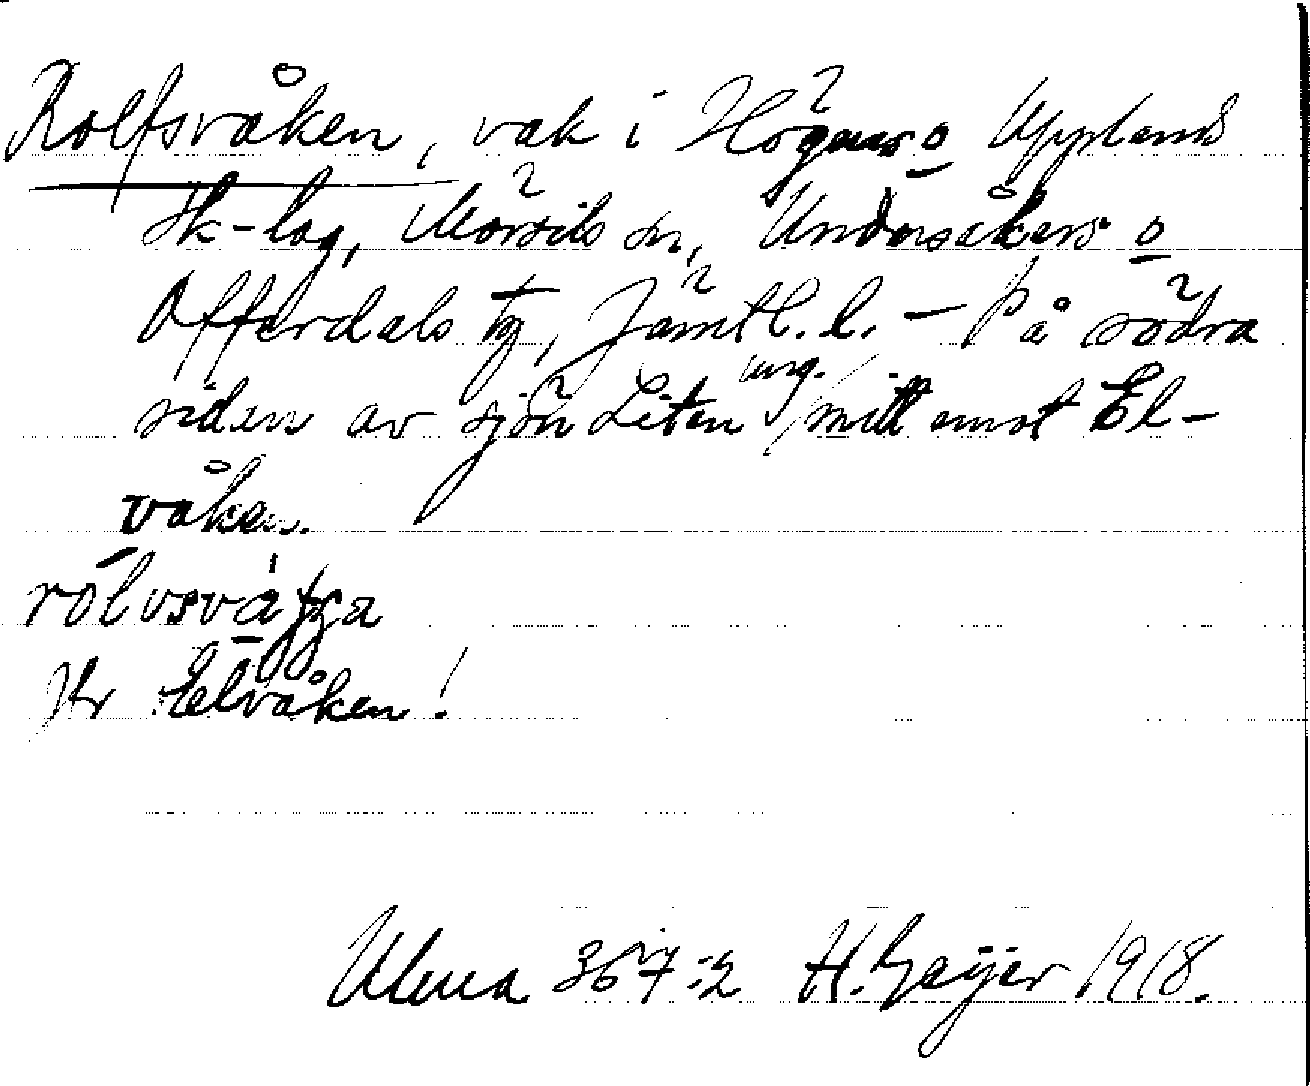 Rolfsvåken, vak i Högnas o Upplands
sk-lag, Mörsils sn, Undersåkers o
Offerdals tg, Jämtl. l. — På södra
siden av sjön Liten ung. mitt emot El-
våken.
Jfr Elvåken!
Ulma 367:2 H. Geijer 1918.